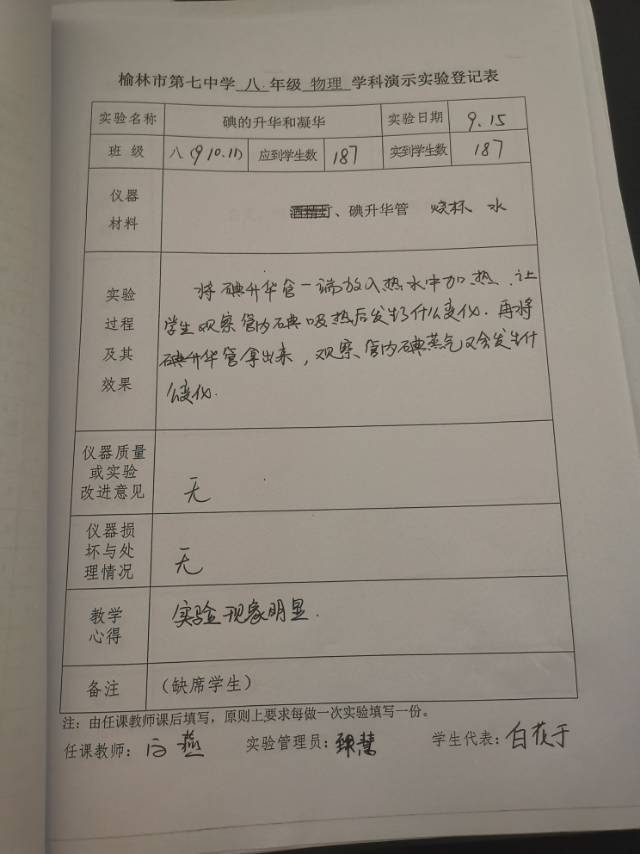 榆林市第七中学 八 年级 物理 学科演示实验登记表
实验名称 碘的升华和凝华 实验日期 9.15
班 级 八(9 10.11) 应到学生数 187 实到学生数 187
仪器
材料
、碘升华管 烧杯 水
实验
过程
及其
效果
将碘升华管一端放入热水中加热,让
学生观察管内碘吸热后发生了什么变化.再将
碘升华管拿出来,观察管内碘蒸气又会发生什
么变化.
仪器质量
或实验
改进意见
无
仪器损
坏与处
理情况
无
教学
心得
实验现象明显.
备注 (缺席学生)
注:由任课教师课后填写,原则上要求每做一次实验填写一份。
任课教师: 燕 实验管理员: 慧 学生代表:白